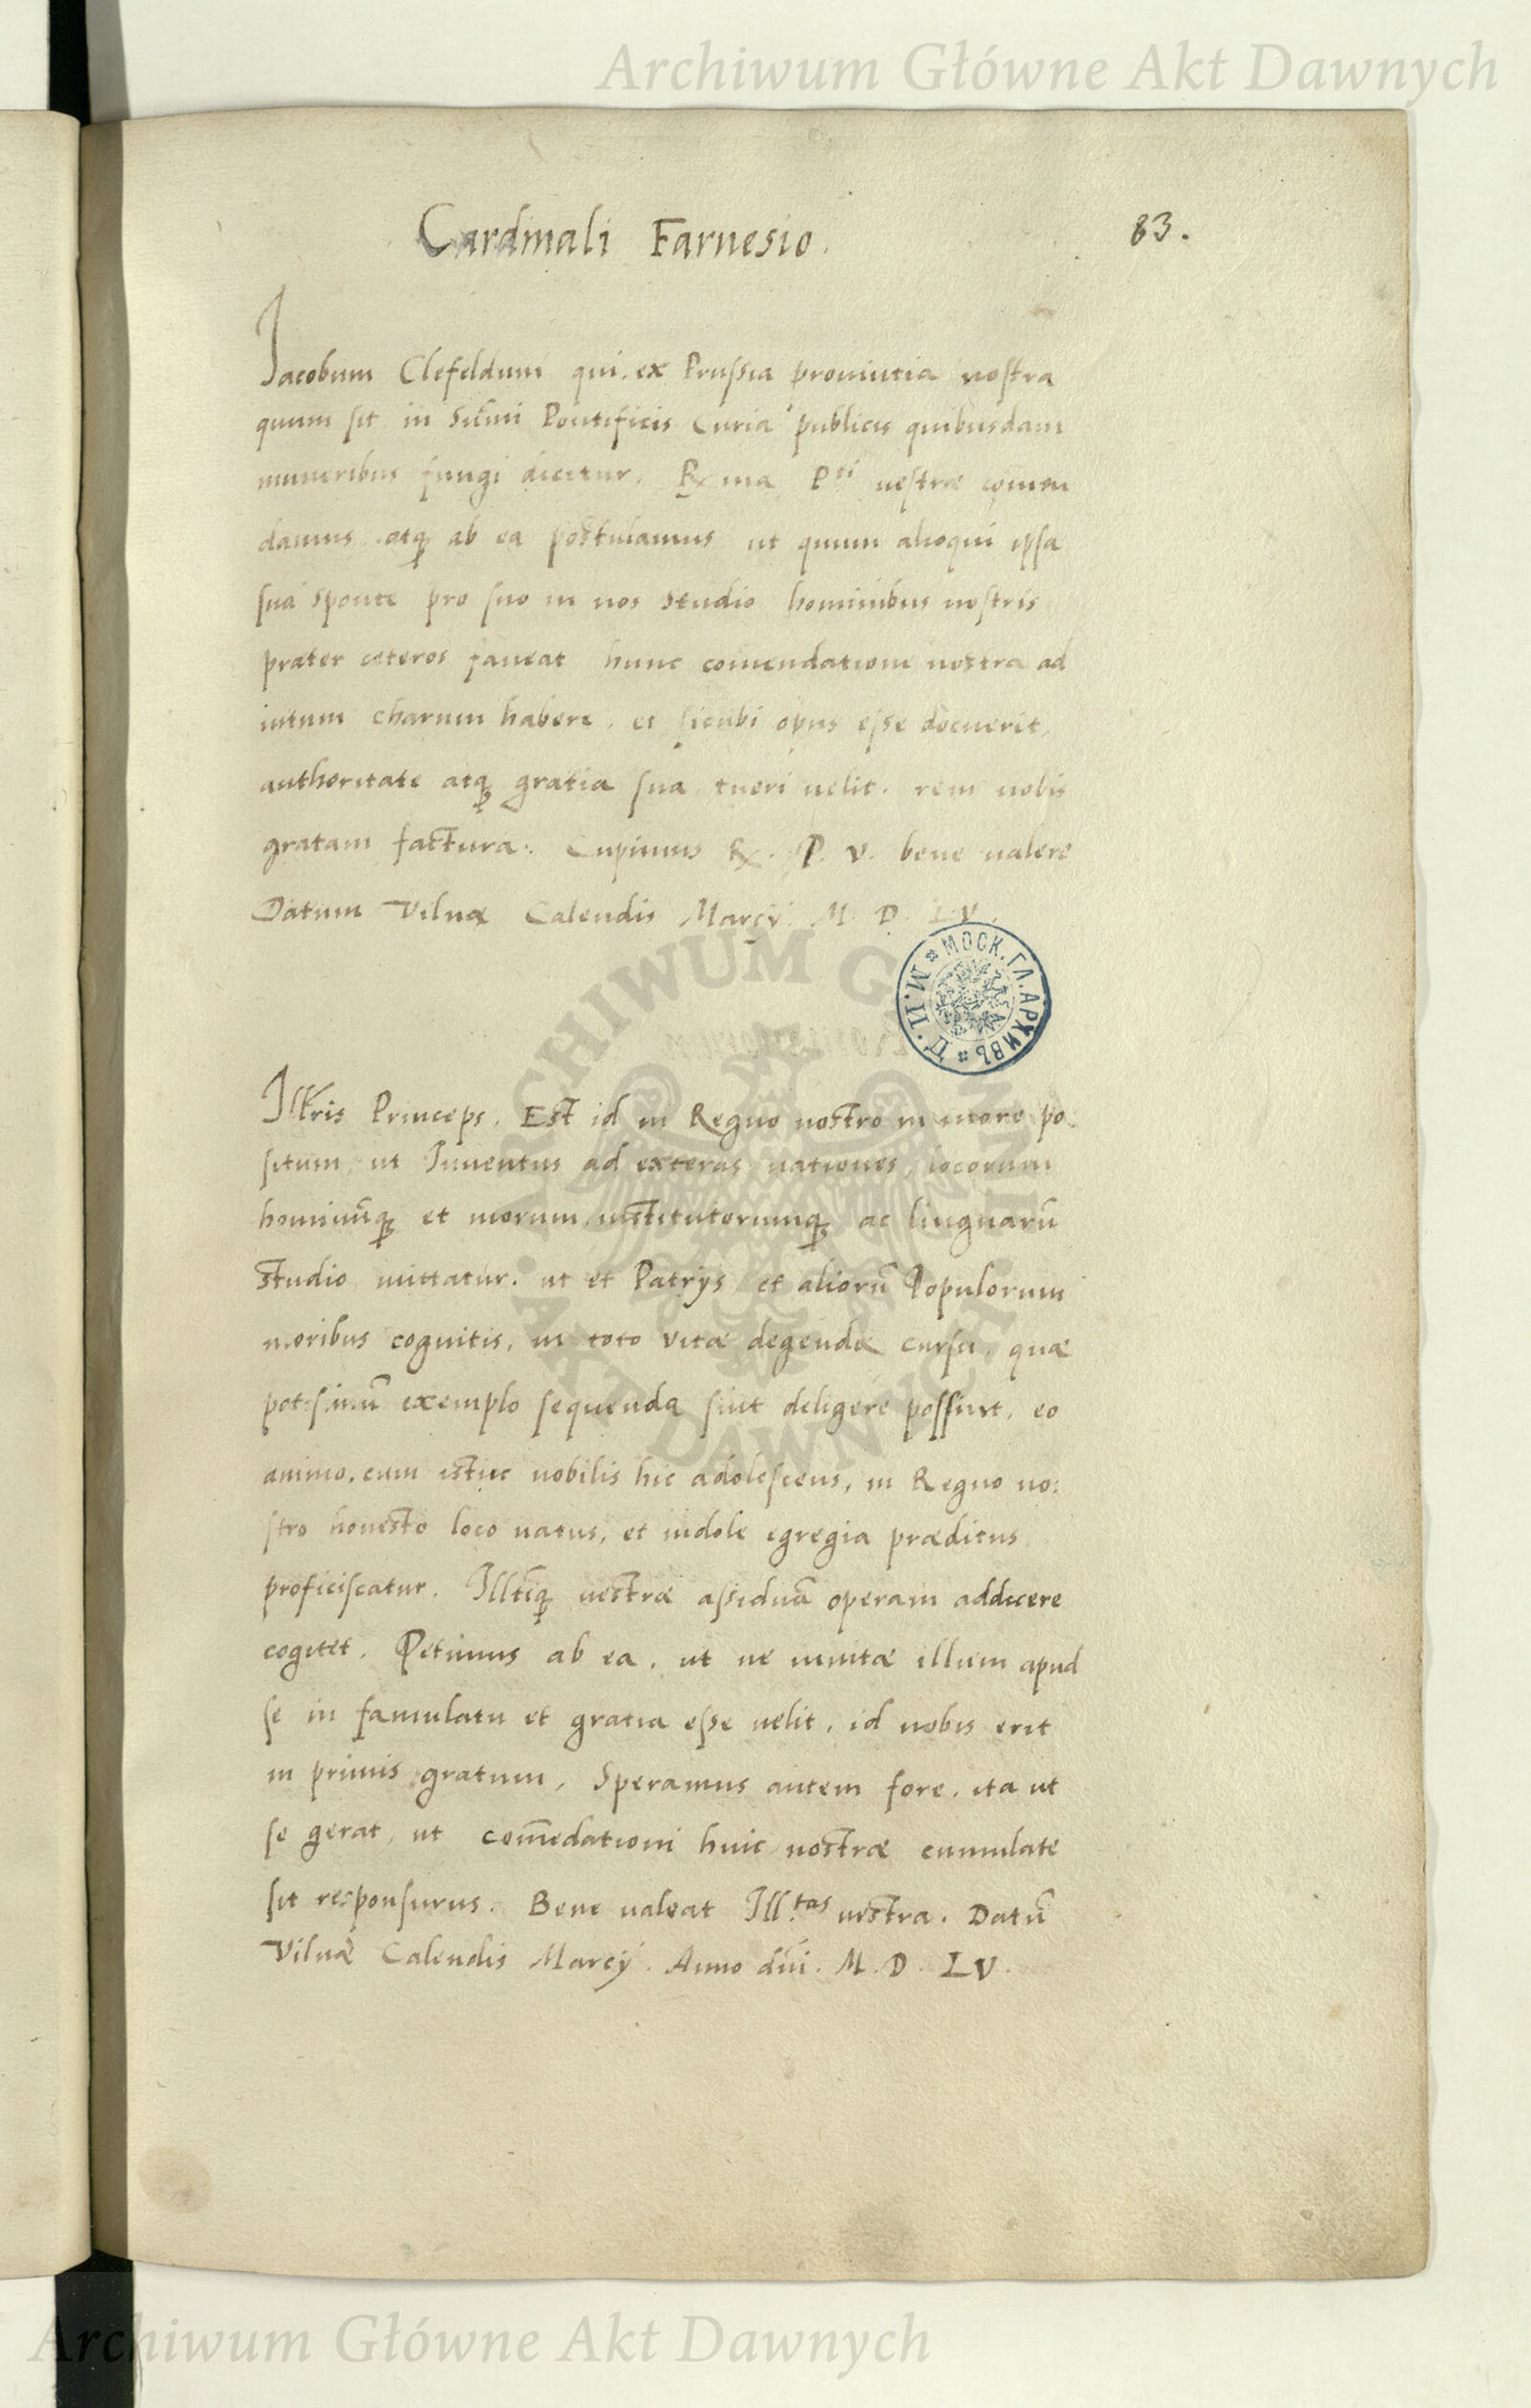 Archiwum Główne Akt Dawnych
83.
Cardinali Farnesio.
Jacobum Clefeldum qui ex Prussia provintia nostra
quum sit in Sũmi Pontificis Curia publicis quibusdam
muneribus fungi dicitur. Rx ma P.ti vestræ comen
damus atq ab ea postulamus ut quum alioqui ipsa
sua sponte pro suo in nos studio hominibus nostris
præter ceteros faveat hunc comendatione nostra ad
intum charum habere, et sicubi opus esse docuerit,
authoritate atq gratia sua tueri velit. rem nobis
gratam factura. Cupimus R. P. V. bene valere
Datum Vilnæ Calendis Marcÿ M. D. LV.
МОСК. ГЛ. АРХИВЪ М. И. Д.
Illt̃ris Princeps. Est id in Regno nostro in more po
situm, ut Iuventus ad exteras nationes, locorum
hominũq et morum institutorumq ac linguarũ
studio mittatur. ut et Patrÿs et aliorũ Populorum
moribus cognitis, in toto vitæ degendæ cursu, quæ
potissimũ exemplo sequenda sint deligere possint, eo
animo, cum istuc nobilis hic adolescens, in Regno no:
stro honesto loco natus, et indole egregia præditus
proficiscatur. Illt̃iq vestræ assiduã operam addicere
cogitet. Petimus ab ea, ut ne invitæ illum apud
se in famulatu et gratia esse velit, id nobis erit
in primis gratum, Speramus autem fore, ita ut
se gerat, ut com̃edationi huic nostræ cumulate
sit responsurus. Bene valeat Ill.tas vestra. Datũ
Vilnæ Calendis Marcÿ. Anno dñi. M. D. LV.
ARCHIWUM GŁÓWNE AKT DAWNYCH
Archiwum Główne Akt Dawnych